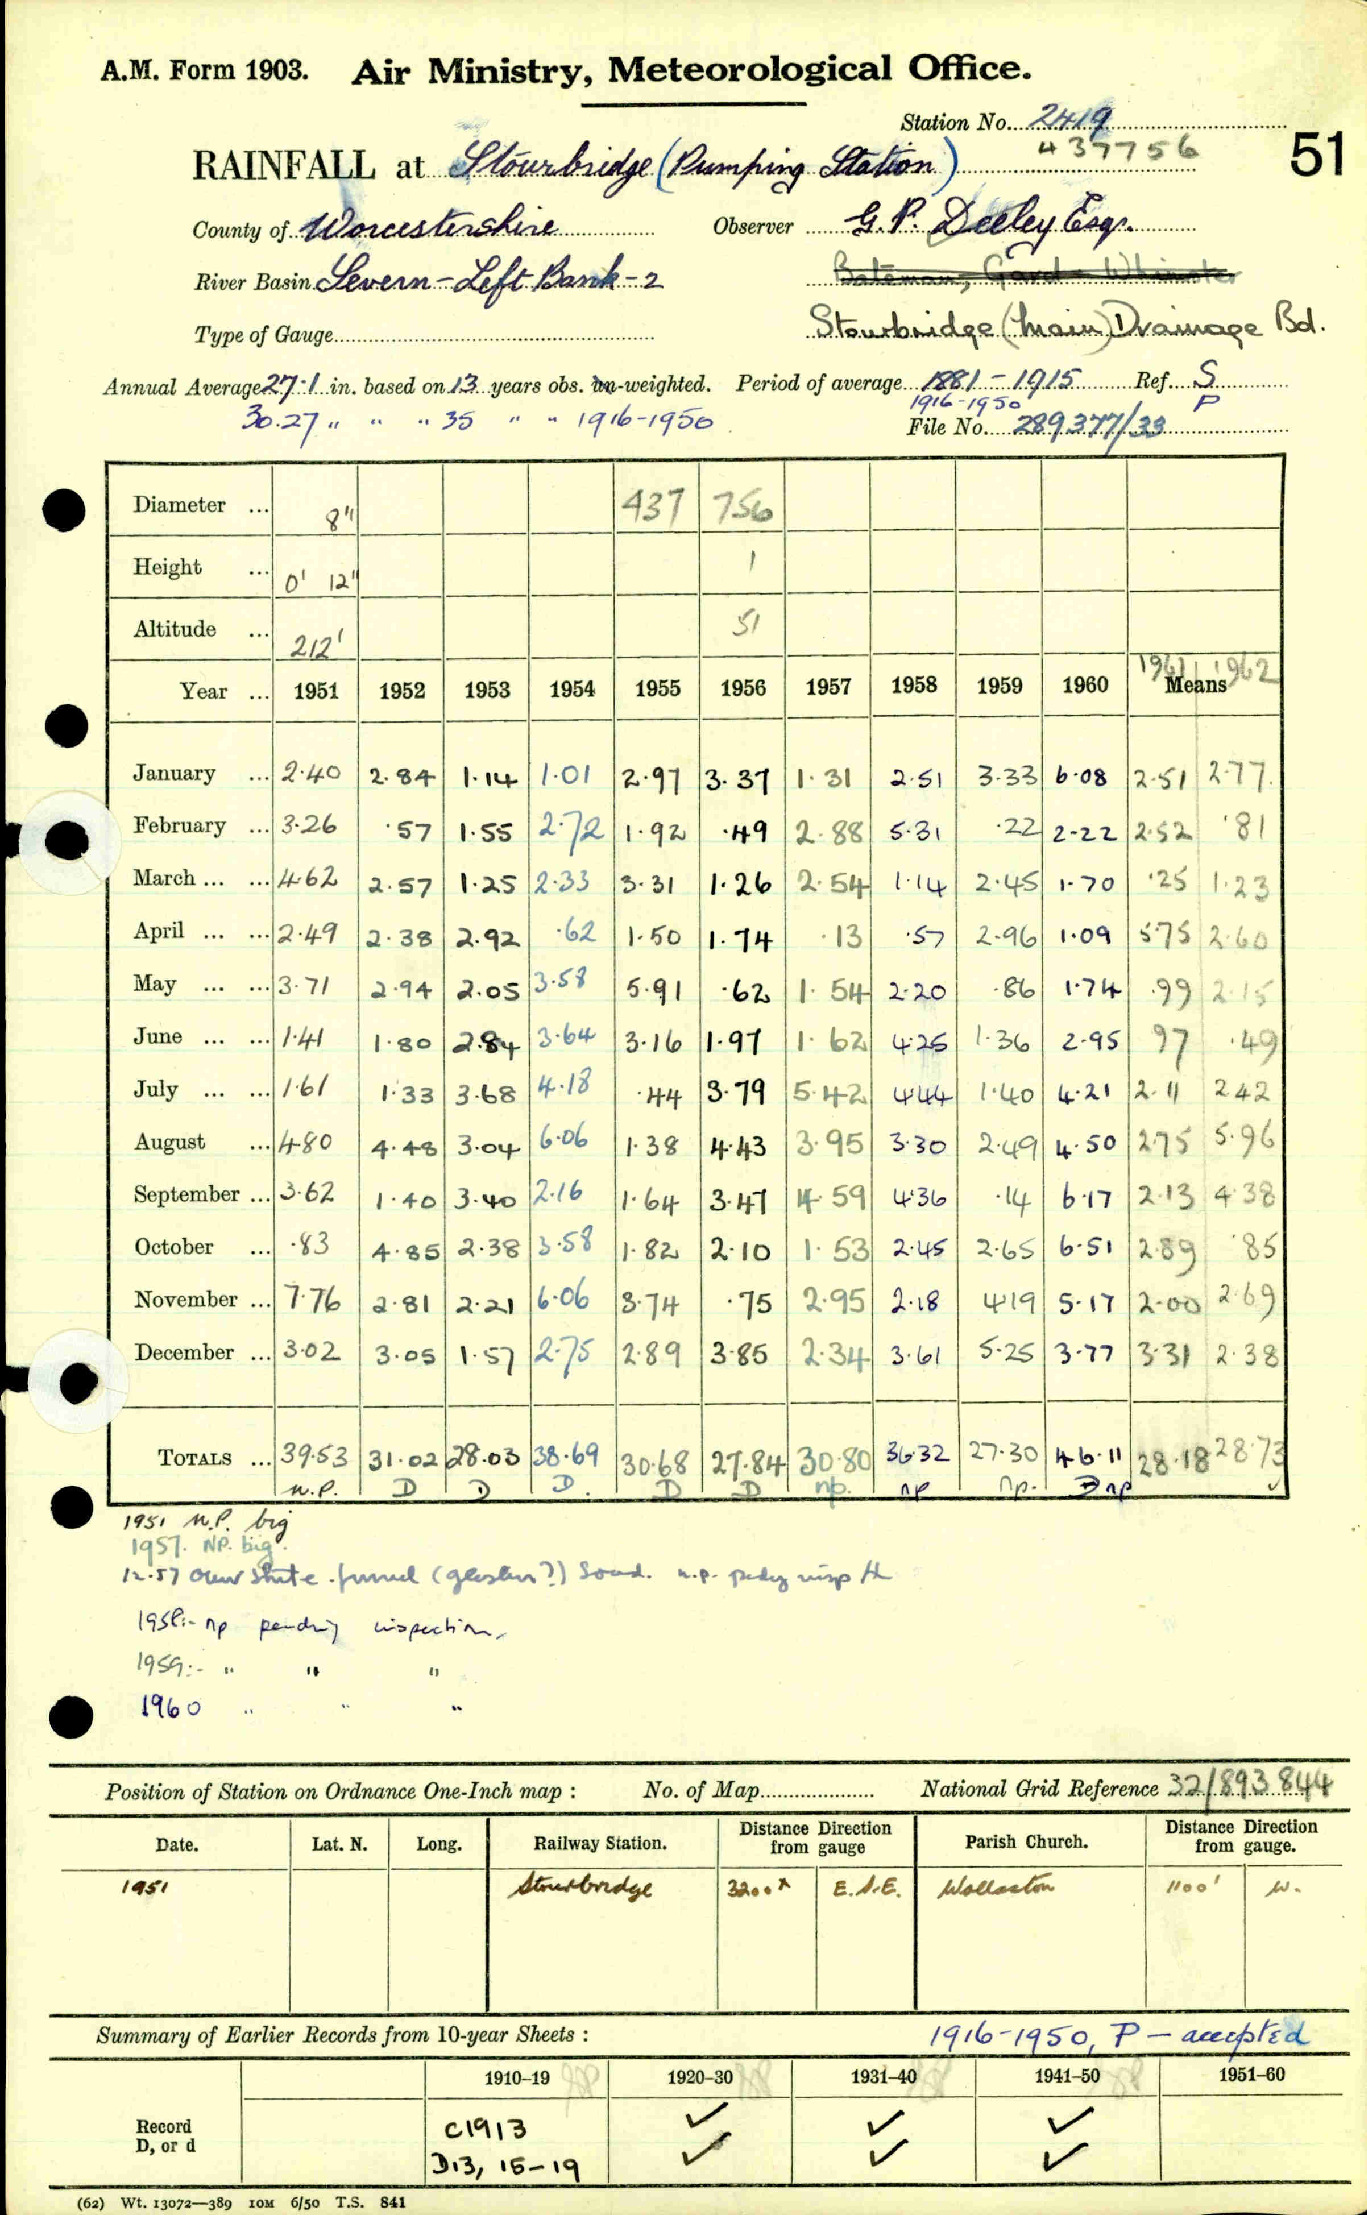 A.M. Form 1903. Air Ministry, Meteorological Office.
Station No. 2419
437756
51
RAINFALL at Stourbridge (Pumping Station)
County of Worcestershire Observer G. P. Deeley Esq.
River Basin Severn - Left Bank - 2
Type of Gauge Stourbridge (Main) Drainage Bd.
Annual Average 27.1 in. based on 13 years obs. un-weighted. Period of average 1881-1915 Ref. S
30.27 " " " 35 " " 1916-1950 1916-1950 P
File No. 289377/33
Diameter ... 8" 437 756
Height ... 0' 12" 1
Altitude ... 212' 51
Year ... 1951 1952 1953 1954 1955 1956 1957 1958 1959 1960 Means 1961 1962
January ... 2.40 2.84 1.14 1.01 2.97 3.37 1.31 2.51 3.33 6.08 2.51 2.77
February ... 3.26 .57 1.55 2.72 1.92 .49 2.88 5.31 .22 2.22 2.52 .81
March ... ... 4.62 2.57 1.25 2.33 3.31 1.26 2.54 1.14 2.45 1.70 .25 1.23
April ... ... 2.49 2.38 2.92 .62 1.50 1.74 .13 .57 2.96 1.09 5.75 2.60
May ... ... 3.71 2.94 2.05 3.58 5.91 .62 1.54 2.20 .86 1.74 .99 2.15
June ... ... 1.41 1.80 2.84 3.64 3.16 1.97 1.62 4.25 1.36 2.95 97 .49
July ... ... 1.61 1.33 3.68 4.18 .44 3.79 5.42 4.44 1.40 4.21 2.11 2.42
August ... 4.80 4.48 3.04 6.06 1.38 4.43 3.95 3.30 2.49 4.50 2.75 5.96
September ... 3.62 1.40 3.40 2.16 1.64 3.47 4.59 4.36 .14 6.17 2.13 4.38
October ... .83 4.85 2.38 3.58 1.82 2.10 1.53 2.45 2.65 6.51 2.89 .85
November ... 7.76 2.81 2.21 6.06 3.74 .75 2.95 2.18 4.19 5.17 2.00 2.69
December ... 3.02 3.05 1.57 2.75 2.89 3.85 2.34 3.61 5.25 3.77 3.31 2.38
TOTALS ... 39.53 31.02 28.03 38.69 30.68 27.84 30.80 36.32 27.30 46.11 28.18 28.73
n.P. D D D. D D np. np np. D np
1951 N.P. big
1957. NP. big.
12.57 funnel Sound. n.p.
1958:- np pending inspection.
1959:- " " "
1960 " " "
Position of Station on Ordnance One-Inch map : No. of Map National Grid Reference 32/893 844
Date. Lat. N. Long. Railway Station. Distance Direction from gauge Parish Church. Distance Direction from gauge.
1951 Stourbridge 3200 E.S.E. Wollaston 1100' W.
Summary of Earlier Records from 10-year Sheets : 1916-1950, P - accepted
1910-19 1920-30 1931-40 1941-50 1951-60
Record C1913 ✓ ✓ ✓
D, or d D13, 15-19 ✓ ✓ ✓
(62) Wt. 13072—389 10M 6/50 T.S. 841